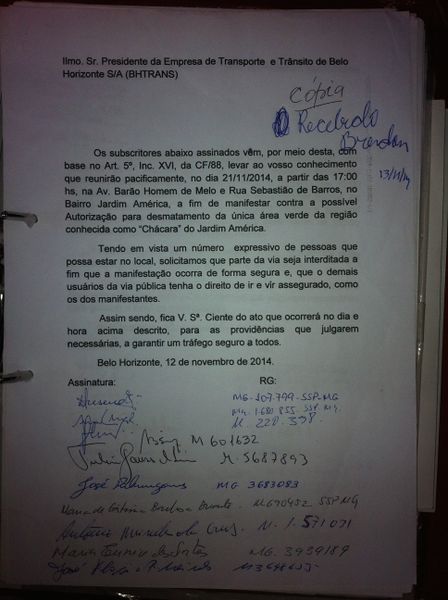 Ilmo. Sr. Presidente da Empresa de Transporte e Trânsito de Belo
Horizonte S/A (BHTRANS)
Cópia
Recebido
Brandan
13/11/14
Os subscritores abaixo assinados vêm, por meio desta, com
base no Art. 5º, Inc. XVI, da CF/88, levar ao vosso conhecimento
que reunirão pacificamente, no dia 21/11/2014, a partir das 17:00
hs, na Av. Barão Homem de Melo e Rua Sebastião de Barros, no
Bairro Jardim América, a fim de manifestar contra a possível
Autorização para desmatamento da única área verde da região
conhecida como "Chácara" do Jardim América.
Tendo em vista um número expressivo de pessoas que
possa estar no local, solicitamos que parte da via seja interditada a
fim que a manifestação ocorra de forma segura e, que o demais
usuários da via pública tenha o direito de ir e vir assegurado, como
os dos manifestantes.
Assim sendo, fica V. Sª. Ciente do ato que ocorrerá no dia e
hora acima descrito, para as providências que julgarem
necessárias, a garantir um tráfego seguro a todos.
Belo Horizonte, 12 de novembro de 2014.
Assinatura: RG:
MG-107.799-SSP-MG
M. 228.338
M 601632
M. 5687893
José MG 3683083
Maria de M690452 SSPMG
Antônio M. 1.571071
Maria MG. 3939189
José